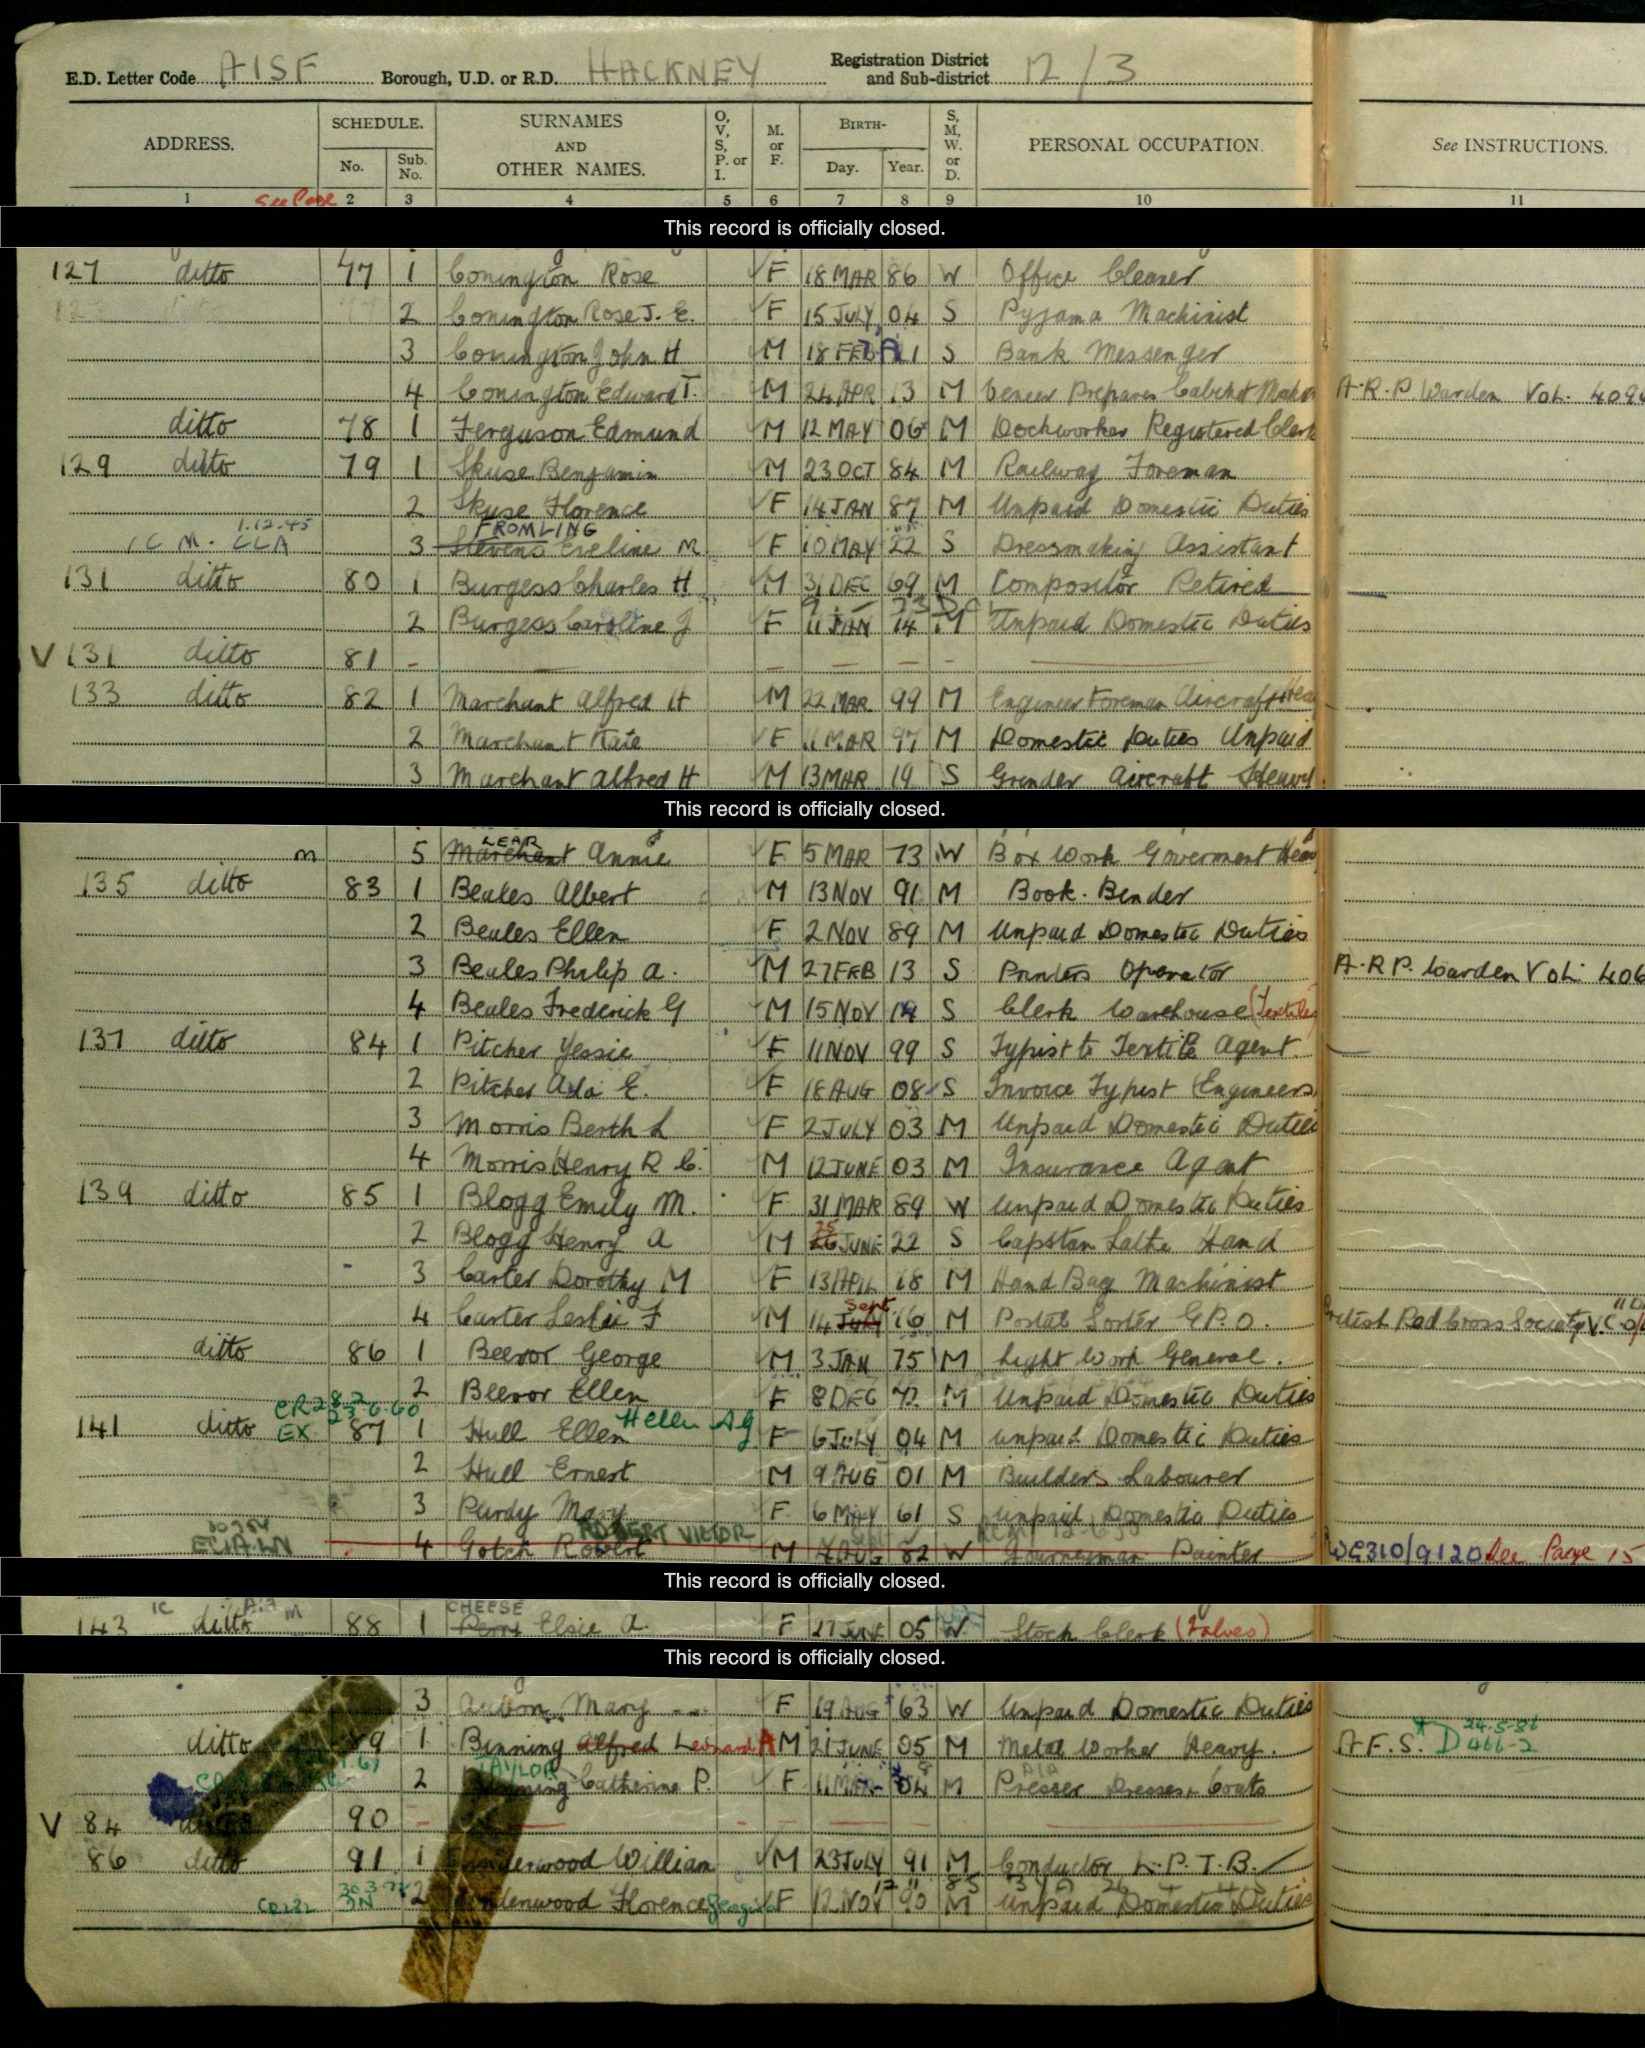 E.D. Letter Code AISF Borough, U.D. or R.D. HACKNEY Registration District and Sub-district 12/3
ADDRESS. SCHEDULE. No. Sub. No. SURNAMES AND OTHER NAMES. O, V, S, P. or I. M. or F. BIRTH- Day. Year. S, M, W. or D. PERSONAL OCCUPATION. See INSTRUCTIONS.
1 See Page 2 3 4 5 6 7 8 9 10 11
This record is officially closed.
127 ditto 77 1 Conington Rose F 18 MAR 86 W Office Cleaner
2 Conington Rose J. E. F 15 JULY 04 S Pyjama Machinist
3 Conington John H M 18 FEB 11 S Bank Messenger
4 Conington Edward T. M 24 APR 13 M Veneer Preparer Cabinet Maker A.R.P Warden Vol. 409
ditto 78 1 Ferguson Edmund M 12 MAY 06 M Dockworker Registered Clerk
129 ditto 79 1 Skuse Benjamin M 23 OCT 84 M Railway Foreman
2 Skuse Florence F 14 JAN 87 M Unpaid Domestic Duties
1.12.45 FROMLING
3 Stevens Eveline M. F 10 MAY 22 S Dressmaking Assistant
131 ditto 80 1 Burgess Charles H M 31 DEC 69 M Compositor Retired
2 Burgess Caroline J F 11 JAN 74 M Unpaid Domestic Duties
V 131 ditto 81 - — — — — - —
133 ditto 82 1 Marchant Alfred H M 22 MAR 99 M Engineer Foreman Aircraft Hea
2 Marchant Kate F 11 MAR 97 M Domestic Duties Unpaid
3 Marchant Alfred H M 13 MAR 19 S Grinder Aircraft Heavy
This record is officially closed.
LEAR
m 5 Marchant Annie F 5 MAR 73 W Box Work Goverment Heavy
135 ditto 83 1 Beales Albert M 13 NOV 91 M Book-Binder
2 Beales Ellen F 2 NOV 89 M Unpaid Domestic Duties
3 Beales Philip A. M 27 FEB 13 S Printers Operator A.R.P. Warden Vol. 406
4 Beales Frederick G M 15 NOV 14 S Clerk Warehouse (Textiles
137 ditto 84 1 Pitcher Jessie F 11 NOV 99 S Typist to Textile Agent.
2 Pitcher Ada E. F 18 AUG 08 S Invoice Typist (Engineers)
3 Morris Berth L F 2 JULY 03 M Unpaid Domestic Duties
4 Morris Henry R C. M 12 JUNE 03 M Insurance Agent
139 ditto 85 1 Blogg Emily M. F 31 MAR 89 W Unpaid Domestic Duties
25
2 Blogg Henry A M 26 JUNE 22 S Capstan Lathe Hand
3 Carter Dorothy M F 13 APIL 18 M Hand Bag Machinist
Sept.
4 Carter Leslie F M 14 July 16 M Postal Sorter G.P.O. British Red Cross Society V.C.
ditto 86 1 Beevor George M 3 JAN 75 M Light Work General.
2 Beevor Ellen F 8 DEC 72 M Unpaid Domestic Duties
141 ditto EX 87 1 Hull Ellen Hellen A G F 6 JULY 04 M Unpaid Domestic Duties
2 Hull Ernest M 9 AUG 01 M Builders Labourer
3 Purdy Mary F 6 MAY 61 S Unpaid Domestic Duties
ROBERT VICTOR
4 Gotch Robert M 7 AUG 82 W Journeyman Painter WE310/9120 See Page 15
This record is officially closed.
CHEESE
143 ditto 88 1 Perry Elsie A. F 27 JUNE 05 W Stock Clerk (Valves)
This record is officially closed.
3 Mary F 19 AUG 63 W Unpaid Domestic Duties
ditto 89 1 Binning Alfred Leonard A M 21 JUNE 05 M Metal Worker Heavy. A.F.S. D 24-5-86 466-2
TAYLOR
2 Binning Catherine P. F 11 MAR 04 M Presser Dresses & Coats
V 84 ditto 90 - — - — — — —
86 ditto 91 1 Underwood William M 23 JULY 91 M Conductor L.P.T.B.
30.3.72
CR282 JN 2 Underwood Florence Georgina F 12 NOV 90 M Unpaid Domestic Duties